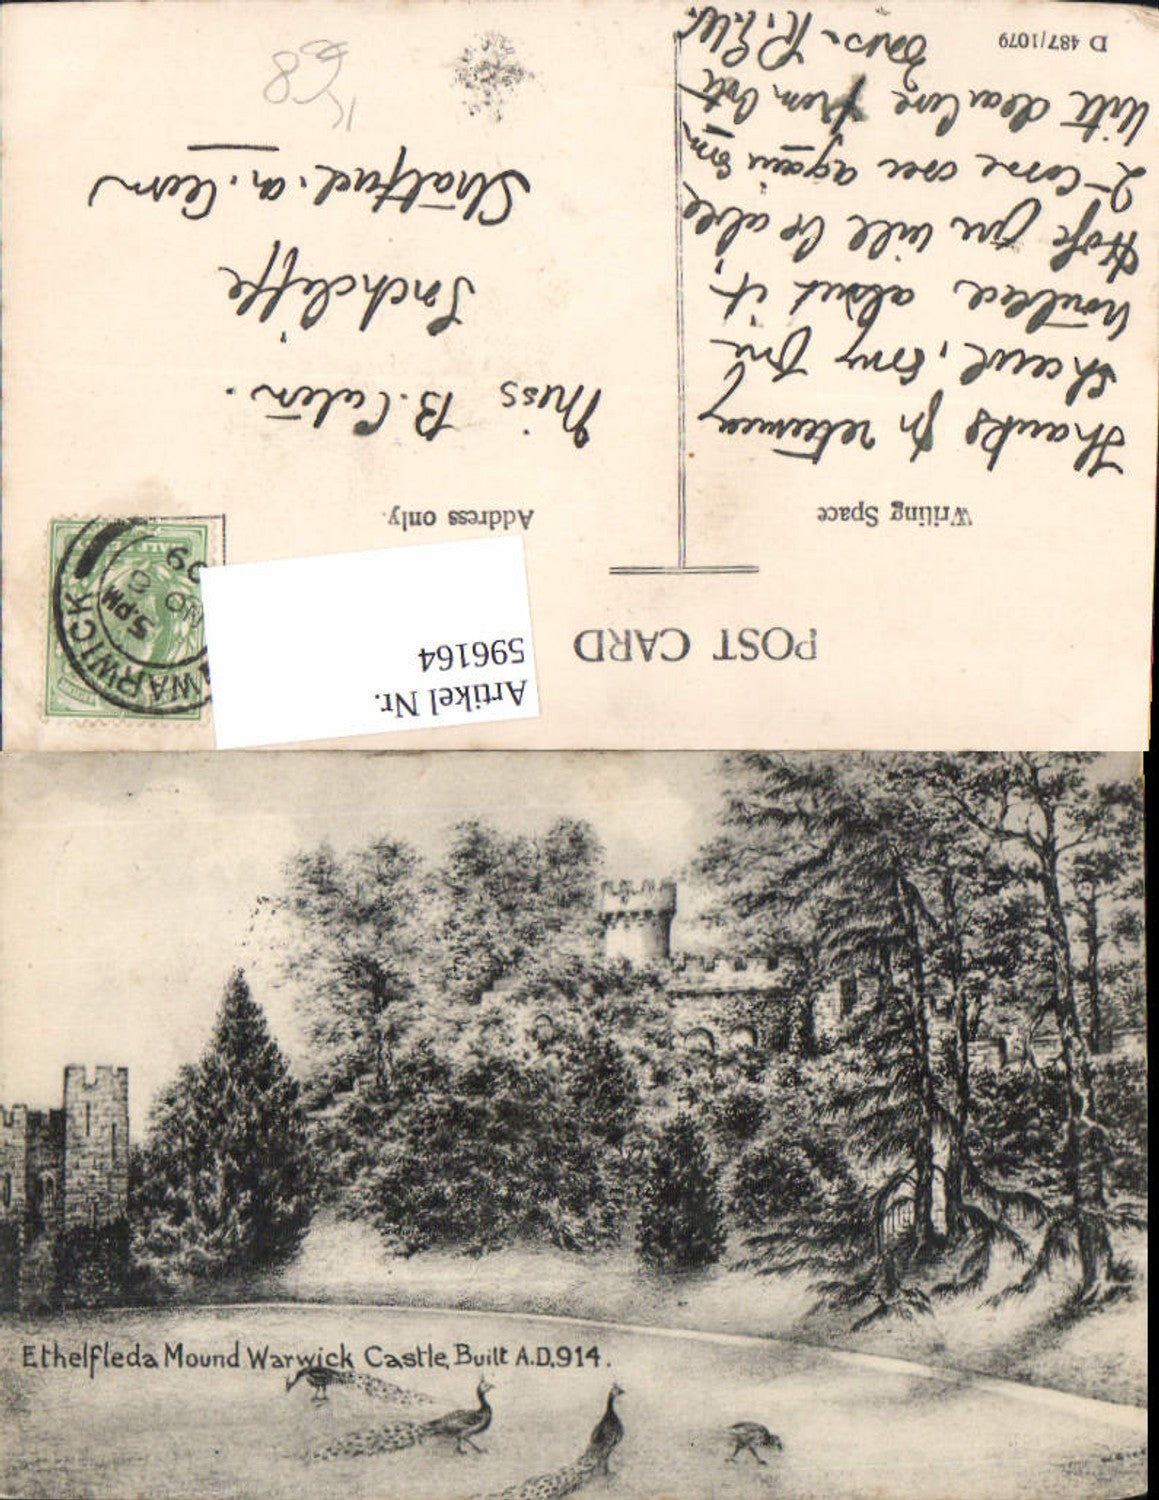 POST CARD
Writing Space
Address only.
Thanks for returning
shawl, sorry you
troubled about it,
Hope you will be able
to come over again soon
With dear love from both
Mrs. R.
Miss B. 
Inchcliffe
Stratford. on. Avon
D 487/1079
WARWICK
5.PM
NO 6
09
Artikel Nr.
596164
Ethelfleda Mound Warwick Castle, Built A.D. 914.